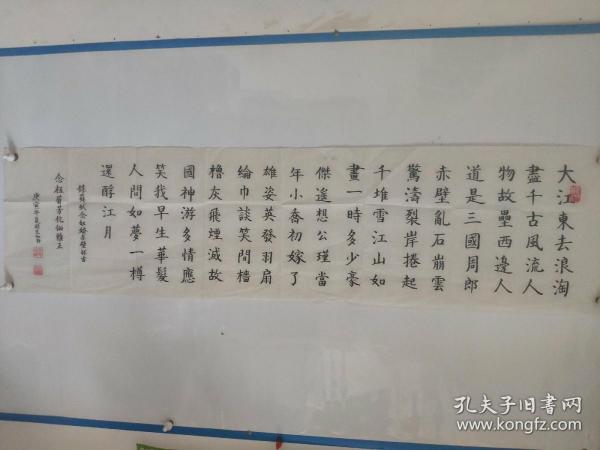 大江東去浪淘
盡千古風流人
物故壘西邊人
道是三國周郎
赤壁亂石崩雲
驚濤裂岸捲起
千堆雪江山如
畫一時多少豪
傑遙想公瑾當
年小喬初嫁了
雄姿英發羽扇
綸巾談笑間檣
櫓灰飛煙滅故
國神游多情應
笑我早生華髮
人間如夢一樽
還酹江月
錄蘇軾念奴嬌赤壁懷古
庚寅年
孔夫子旧书网
www.kongfz.com